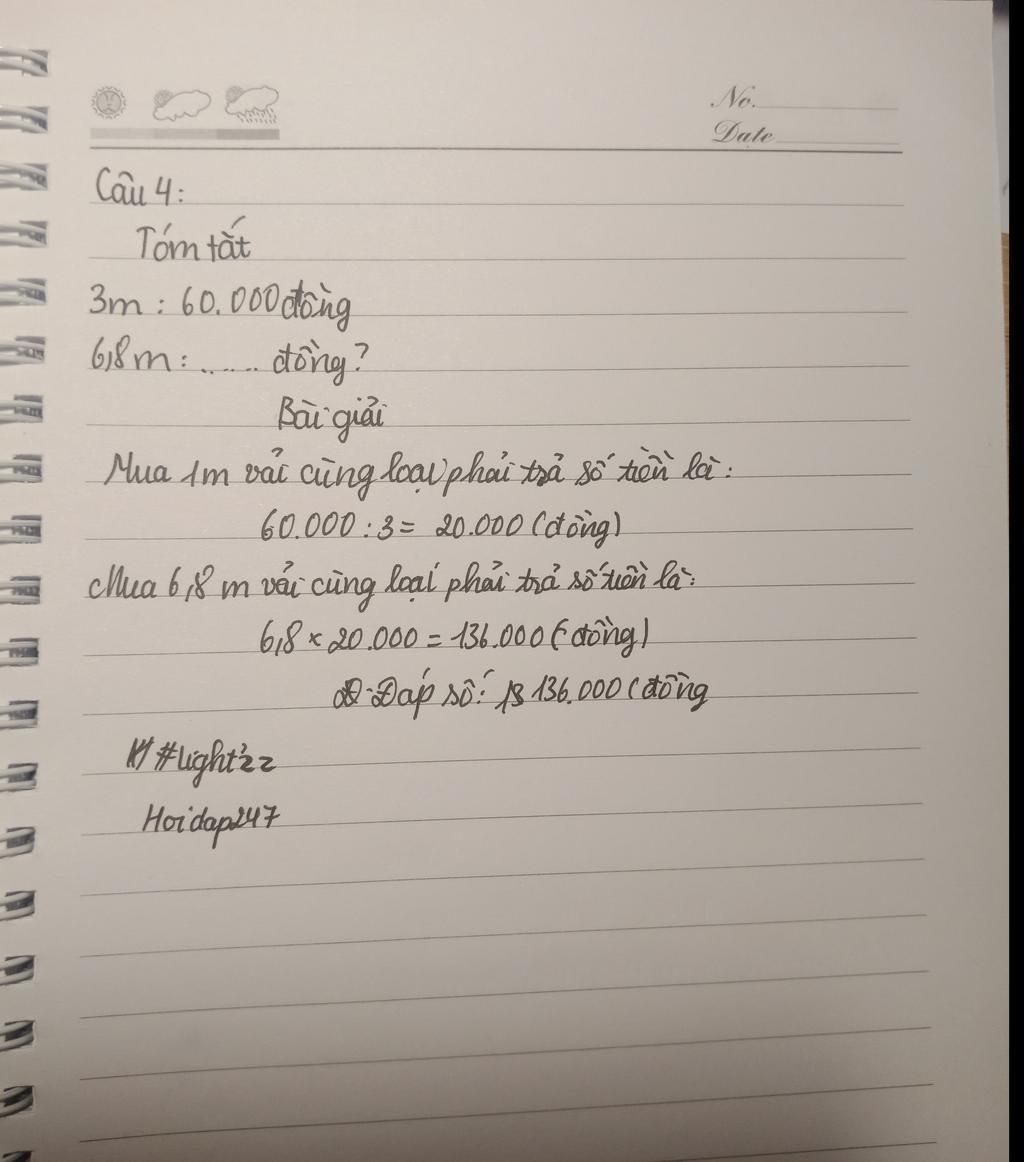 No.
Date
Câu 4:
Tóm tắt
3m : 60.000 đồng
6,8m : ...... đồng?
Bài giải
Mua 1m vải cùng loại phải trả số tiền là:
60.000 : 3 = 20.000 (đồng)
Mua 6,8 m vải cùng loại phải trả số tiền là:
6,8 × 20.000 = 136.000 (đồng)
Đáp số: 136.000 (đồng
#light'zz
Hoidap247